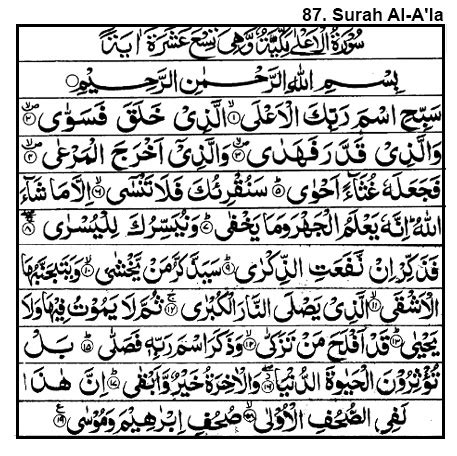 87. Surah Al-A'la
سُوْرَةُ الْاَعْلٰى مَكِّيَّةٌ وَّهِيَ تِسْعَ عَشْرَةَ اٰيَةً
بِسْمِ اللّٰهِ الرَّحْمٰنِ الرَّحِيْمِ
سَبِّحِ اسْمَ رَبِّكَ الْاَعْلَى ۙ﴿۱﴾ الَّذِيْ خَلَقَ فَسَوّٰى ۪ۙ﴿۲﴾
وَالَّذِيْ قَدَّرَ فَهَدٰى ۪ۙ﴿۳﴾ وَالَّذِيْۤ اَخْرَجَ الْمَرْعٰى ۪ۙ﴿۴﴾
فَجَعَلَهٗ غُثَآءً اَحْوٰى ؕ﴿۵﴾ سَنُقْرِئُكَ فَلَا تَنْسٰۤى ۙ﴿۶﴾ اِلَّا مَا شَآءَ
اللّٰهُ ؕ اِنَّهٗ يَعْلَمُ الْجَهْرَ وَمَا يَخْفٰى ؕ﴿۷﴾ وَنُيَسِّرُكَ لِلْيُسْرٰى ۚۖ﴿۸﴾
فَذَكِّرْ اِنْ نَّفَعَتِ الذِّكْرٰى ؕ﴿۹﴾ سَيَذَّكَّرُ مَنْ يَّخْشٰى ۙ﴿۱۰﴾ وَيَتَجَنَّبُهَا
الْاَشْقَى ۙ﴿۱۱﴾ الَّذِيْ يَصْلَى النَّارَ الْكُبْرٰى ۚ﴿۱۲﴾ ثُمَّ لَا يَمُوْتُ فِيْهَا وَلَا
يَحْيٰى ؕ﴿۱۳﴾ قَدْ اَفْلَحَ مَنْ تَزَكّٰى ۙ﴿۱۴﴾ وَذَكَرَ اسْمَ رَبِّهٖ فَصَلّٰى ؕ﴿۱۵﴾ بَلْ
تُؤْثِرُوْنَ الْحَيٰوةَ الدُّنْيَا ۫ۖ﴿۱۶﴾ وَالْاٰخِرَةُ خَيْرٌ وَّاَبْقٰى ؕ﴿۱۷﴾ اِنَّ هٰذَا
لَفِي الصُّحُفِ الْاُوْلٰى ۙ﴿۱۸﴾ صُحُفِ اِبْرٰهِيْمَ وَمُوْسٰى ﴿۱۹﴾